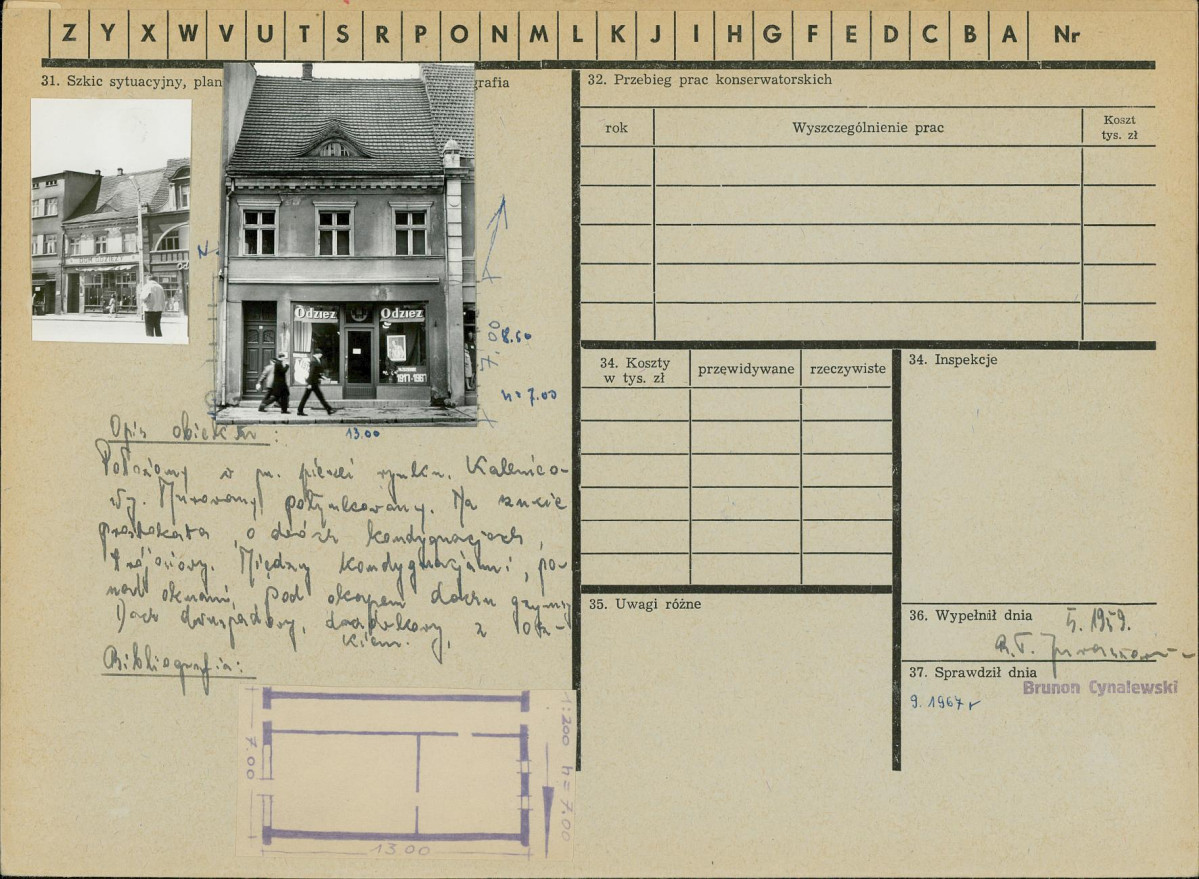 Z Y X W V U T S R P O N M L K J I H G F E D C B A Nr
31. Szkic sytuacyjny, plan
grafia
Odzież Odzież
1917-1967
N.
8.50
h=7.00
13.00
Opis obiektu:
Położony w pn. pierzei rynku. Kalenico-
wy. Murowany potynkowany. Na rzucie
prostokąta, o dwóch kondygnacjach,
trójosiowy. Między kondygnacjami, po-
nad oknami, pod okapem dachu gzymsy
Dach dwuspadowy, dachówkowy, z
kiem.
Bibliografia:
7.00
13.00
1:200 h=7.00
32. Przebieg prac konserwatorskich
rok Wyszczególnienie prac Koszt
tys. zł
34. Koszty
w tys. zł
przewidywane rzeczywiste
34. Inspekcje
35. Uwagi różne
36. Wypełnił dnia 5.1959.
37. Sprawdził dnia
Brunon Cynalewski
9.1967 r